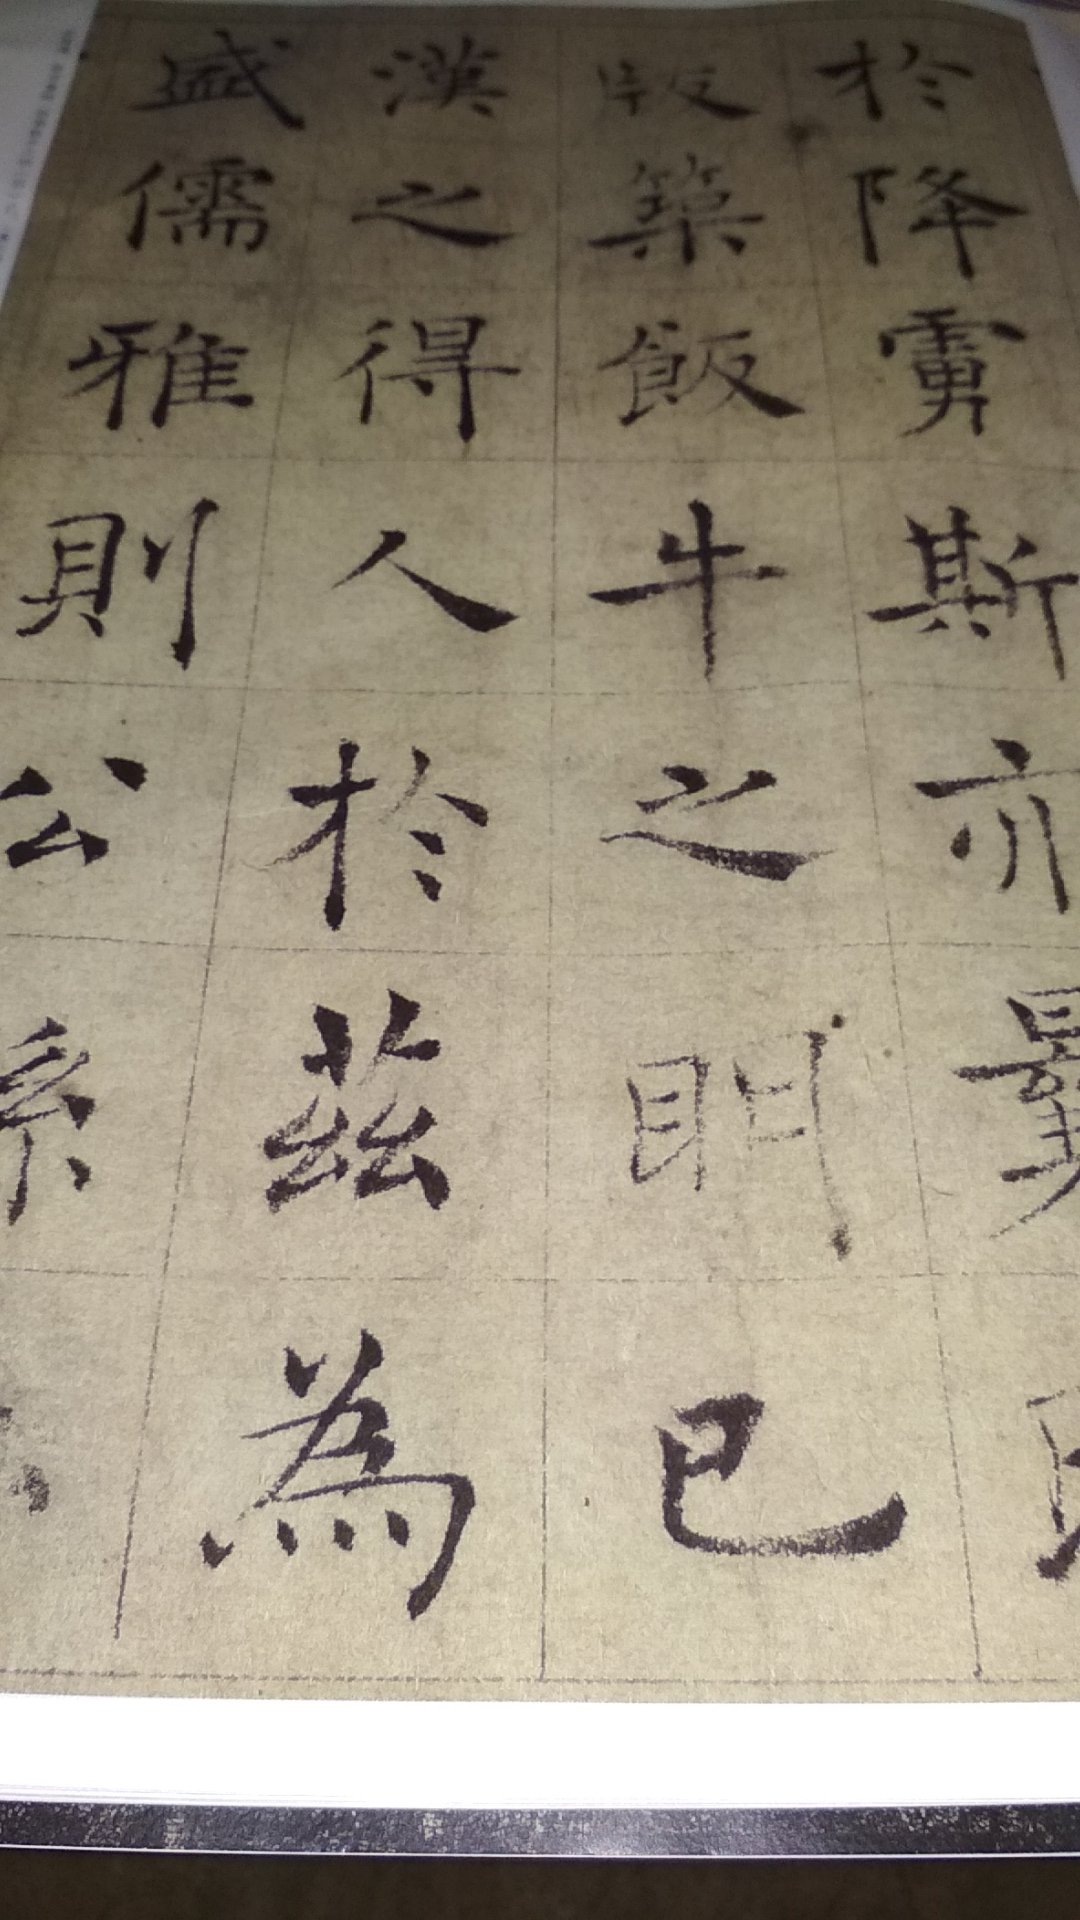 於降虜斯亦曩
版築飯牛之朋已
漢之得人於茲為
盛儒雅則公孫